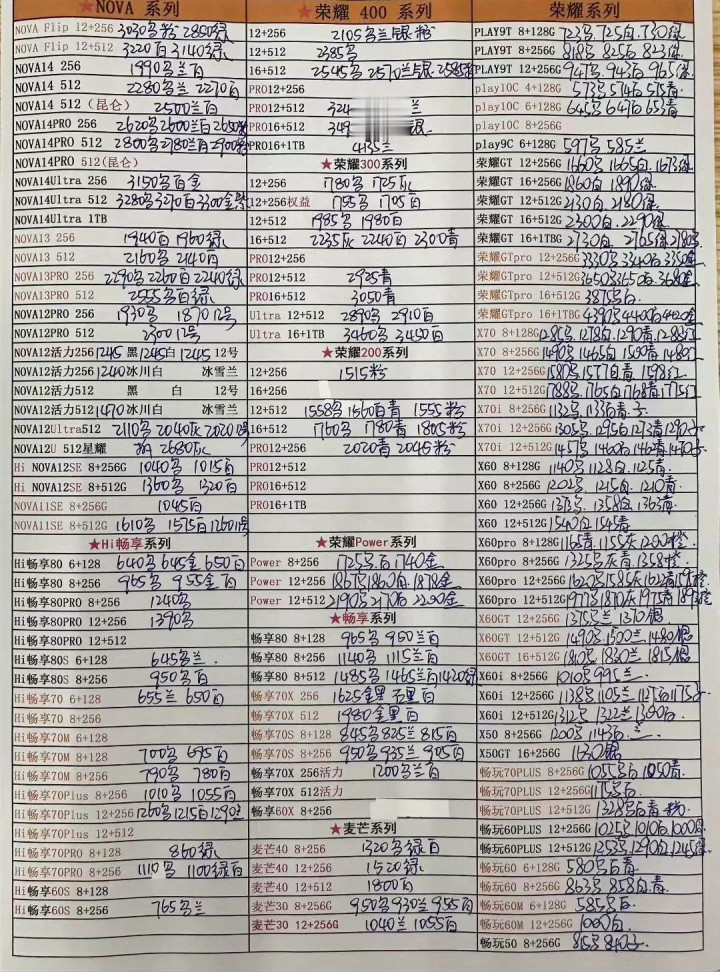 ★NOVA 系列
NOVA Flip 12+256 3030多粉 2850绿
NOVA Flip 12+512 3220白 3140绿
NOVA14 256 1990多兰白
NOVA14 512 2280多兰 2270白
NOVA14 512 (昆仑) 2500兰白
NOVA14PRO 256 2620多2600兰白2650粉
NOVA14PRO 512 2800多2780兰白2900粉
NOVA14PRO 512(昆仑)
NOVA14Ultra 256 3150多白金
NOVA14Ultra 512 3280多3270白3300金
NOVA14Ultra 1TB
NOVA13 256 1940白1960绿
NOVA13 512 2160多 2140白
NOVA13PRO 256 2290多2260白2240绿
NOVA13PRO 512 2555多白绿
NOVA12PRO 256 1930多 1870 12号
NOVA12PRO 512 2300 12号
NOVA12活力256 1245 黑 1245白 1245 12号
NOVA12活力256 1240冰川白 冰雪兰
NOVA12活力512 黑 白 12号
NOVA12活力512 1470冰川白 冰雪兰
NOVA12Ultra512 2110多 2040灰 2020
NOVA12U 512星耀 2680灰
Hi NOVA12SE 8+256G 1040多 1015白
Hi NOVA12SE 8+512G 1360多 1320白
NOVA11SE 8+256G 1045白
NOVA11SE 8+512G 1610多 1575白1260 11号
★Hi畅享系列
Hi畅享80 6+128 640多 645金 650白
Hi畅享80 8+256 965多 955金白
Hi畅享80PRO 8+256 1240多
Hi畅享80PRO 12+256 1390多
Hi畅享80PRO 12+512
Hi畅享80S 6+128 645多兰
Hi畅享80S 8+256 950多白
Hi畅享70 6+128 655兰 650白
Hi畅享70 8+256
Hi畅享70M 6+128
Hi畅享70M 8+128 700多 695白
Hi畅享70M 8+256 790多 780白
Hi畅享70Plus 8+256 1010多 1055白
Hi畅享70Plus 12+256 1260多1215白1290兰
Hi畅享70Plus 12+512
Hi畅享70PRO 8+128 860绿
Hi畅享70PRO 8+256 1110多 1100绿白
Hi畅享60S 8+128
Hi畅享60S 8+256 765多兰
★荣耀 400 系列
12+256 2105多兰银粉
12+512 2385多
16+512 2545多 2570兰银 2585粉
PRO12+256
PRO12+512 兰
PRO16+512 银
PRO16+1TB 4135兰
★荣耀300系列
12+256 1780多 1725灰
12+256权益 1755多 1705白
12+512 1985多 1980白
16+512 2235灰 2240白 2300青
PRO12+256
PRO12+512 2925青
PRO16+512 3050青
Ultra 12+512 2890多 2910白
Ultra 16+1TB 3460多 3450白
★荣耀200系列
12+256 1515粉
16+256
12+512 1558多 1560白青 1555粉
16+512 1760多 1780青 1805粉
PRO12+256 2020青 2045粉
PRO12+512
PRO16+512
PRO16+1TB
★荣耀Power系列
Power 8+256 1725多白1740金
Power 12+256 1867多1860白 1878金
Power 12+512 2190多2170白 2200金
★畅享系列
畅享80 8+128 965多 950兰白
畅享80 8+256 1140多 1115兰白
畅享80 8+512 1485多 1465兰白1420绿
畅享70X 256 1625金黑
畅享70X 512 1980金黑白
畅享70S 8+128 845多825兰 815白
畅享70S 8+256 950多935兰 905白
畅享70X 256活力 1200多兰白
畅享70X 512活力
畅享60X 8+256
★麦芒系列
麦芒40 8+256 1320多绿白
麦芒40 12+256 1520绿
麦芒40 12+512 1800白
麦芒30 8+256G 950多930兰 955白
麦芒30 12+256G 1040兰 1055白
PLAY9T 8+128G 723多.725白.730绿
PLAY9T 8+256G 818多 825白 823绿
PLAY9T 12+256G 947多.943白 965绿
play10C 4+128G 573多574白575青
play10C 6+128G 645多647白653青
play10C 8+256G
play9C 6+128G 597多585兰
荣耀GT 12+256G 1660多1665白.1673绿
荣耀GT 16+256G 1860白 1890绿
荣耀GT 12+512G 2130白 2180绿
荣耀GT 16+512G 2300白 2290绿
荣耀GT 16+1TBG 2730白. 2765绿2780多
荣耀GTpro 12+256G 3330多3340白3350金
荣耀GTpro 12+512G 3650多3650白.3680金
荣耀GTpro 16+512G 3875多白
荣耀GTpro 16+1TBG 4390多4400白4420金
X70 8+128G 1285多.1278白.1290青.1288红
X70 8+256G 1490多1465白1500青1480红
X70 12+256G 1580多1577白青1598红
X70 12+512G 1788多.1765白1768青1775红
X70i 8+256G 1132多1133白青.子
X70i 12+256G 1305多.1295白1273青1290子
X70i 12+512G 1457多1460白1462青1470子
X60 8+128G 1140多1128白.1125青
X60 8+256G 1202多.1215白 1210青
X60 12+256G 1373多.1358白 1363青
X60 12+512G 1540白1545青
X60pro 8+128G 1165青1155灰1200橙
X60pro 8+256G 1325多灰青.1358橙
X60pro 12+256G 1620多1585灰1622青
X60pro 12+512G 1977多1870灰1975青
X60GT 12+256G 1375兰 1370银
X60GT 12+512G 1490多1500兰1480银
X60GT 16+512G 1810多1830兰 1815银
X60i 8+256G 1010多995兰
X60i 12+256G 1138多1105兰
X60i 12+512G 1312多1322兰1300白
X50 8+256G 1200多1143白.兰
X50GT 16+256G 1130银
畅玩70PLUS 8+256G 1055多白1050青
畅玩70PLUS 12+256G 1175多白
畅玩70PLUS 12+512G 1328多白青粉
畅玩60PLUS 12+256G 1025多1010白1000绿
畅玩60PLUS 12+512G 1353多1290白1245绿
畅玩60 6+128G 580多白青
畅玩60 8+256G 863多858白青
畅玩60M 6+128G 585多白
畅玩60M 12+256G 1000白
畅玩50 8+256G 815多840子